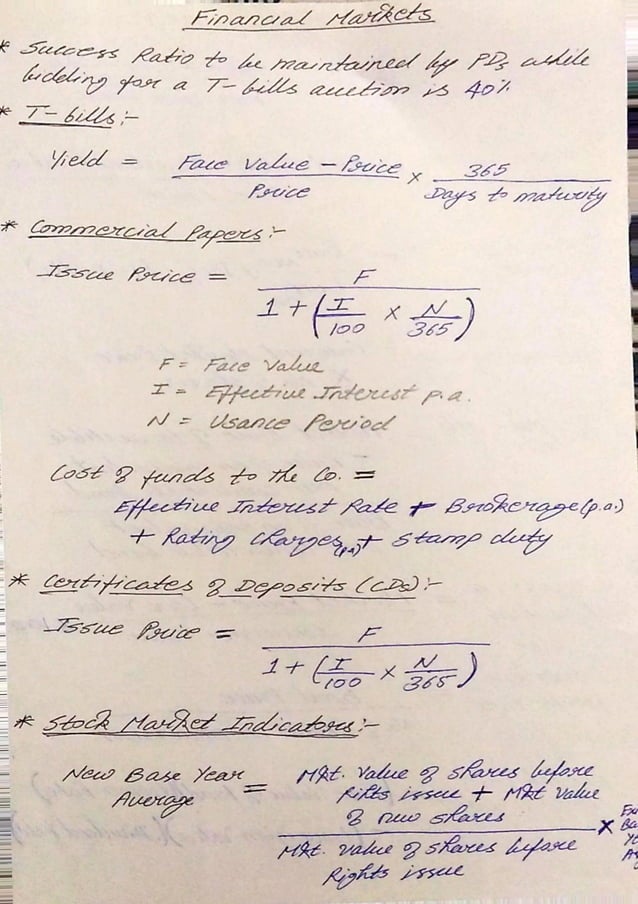 Financial Markets
* Success Ratio to be maintained by PDs while
bidding for a T-bills auction is 40%
* T-bills:-
Yield = Face Value - Price / Price × 365 / Days to maturity
* Commercial Papers:-
Issue Price = F / 1 + (I/100 × N/365)
F = Face Value
I = Effective Interest p.a.
N = Usance Period
Cost of funds to the Co. =
Effective Interest Rate + Brokerage (p.a.)
+ Rating Charges (p.a) + Stamp duty
* Certificates of Deposits (CDs):-
Issue Price = F / 1 + (I/100 × N/365)
* Stock Market Indicators:-
New Base Year Average =
Mkt. Value of shares before
Rights issue + Mkt Value
of new shares
×
Mkt. Value of shares before
Rights issue